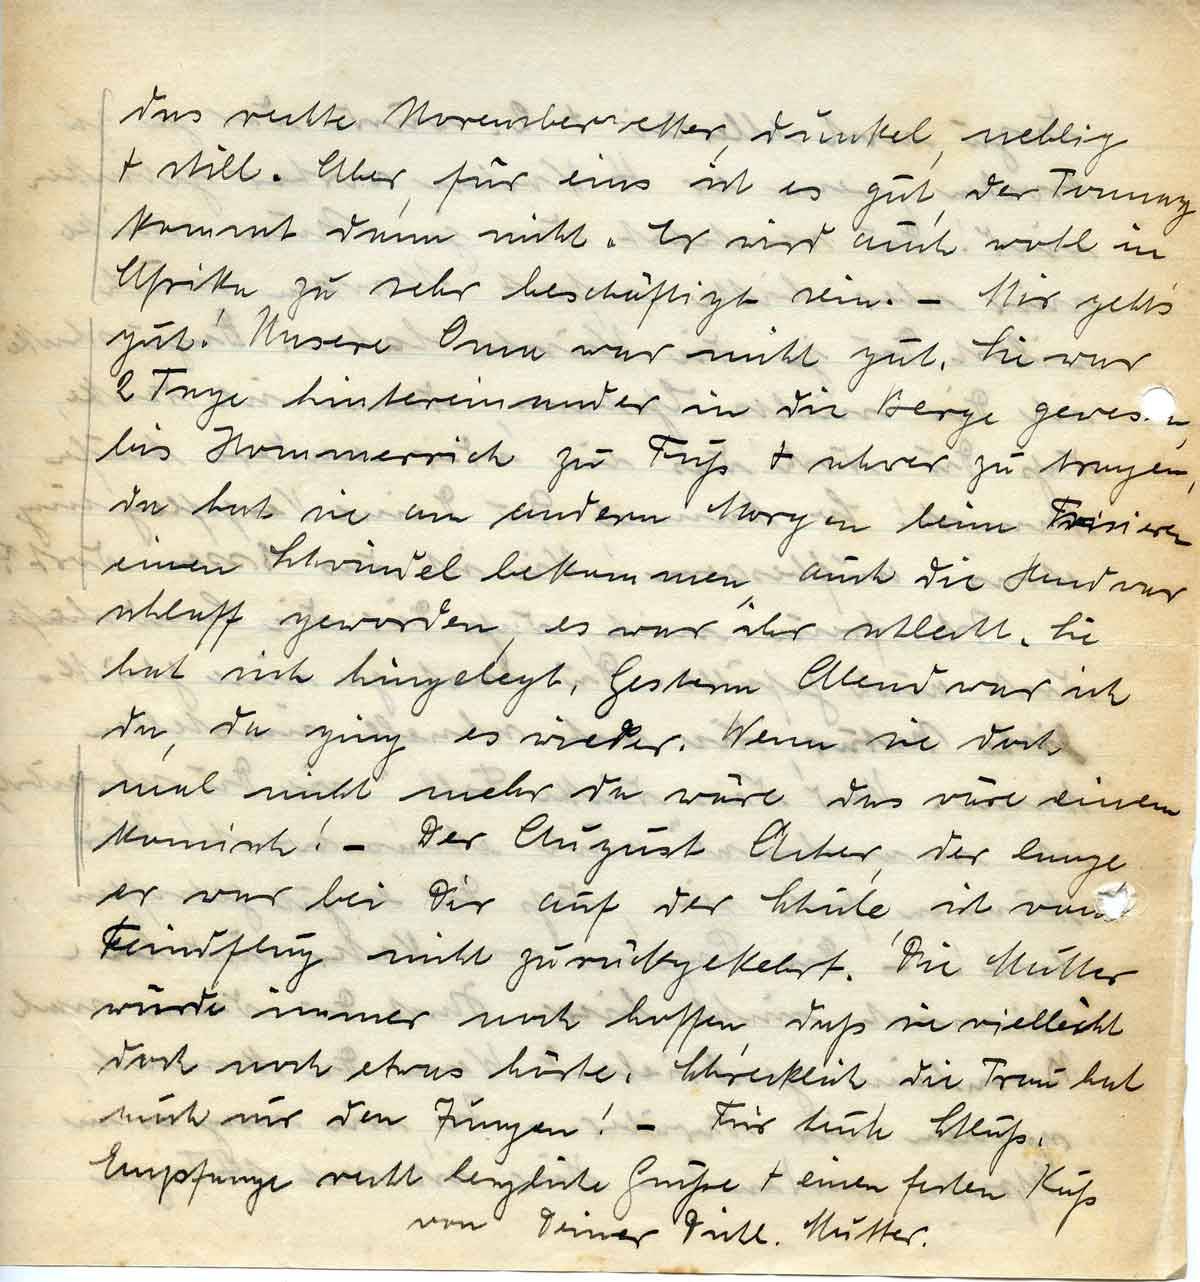 das rechte Novemberwetter, dunkel, neblig
+ still. Aber, für eins ist es gut, der Tommy
kommt dann nicht. Er wird auch wohl in
Afrika zu sehr beschäftigt sein. – Mir geht's
gut! Unsere Oma war nicht gut. Sie war
2 Tage hintereinander in die Berge gewesen,
bis Hommerrich zu Fuß + schwer zu tragen,
da hat sie am andern Morgen beim Frisieren
einen Schwindel bekommen, auch die Hand war
schlaff geworden, es war ihr schlecht. Sie
hat sich hingelegt. Gestern Abend war ich
da, da ging es wieder. Wenn sie doch
mal nicht mehr da wäre das wäre einem
komisch! – Der August der lange
er war bei Dir auf der Schule, ist vom
Feindflug nicht zurückgekehrt. Die Mutter
würde immer noch hoffen, daß sie vielleicht
doch noch etwas hörte. Schrecklich die Frau hat
auch nur den Jungen! – Für heute Schluß.
Empfange recht herzliche Grüße + einen festen Kuß
von Deiner Dichl. Mutter.